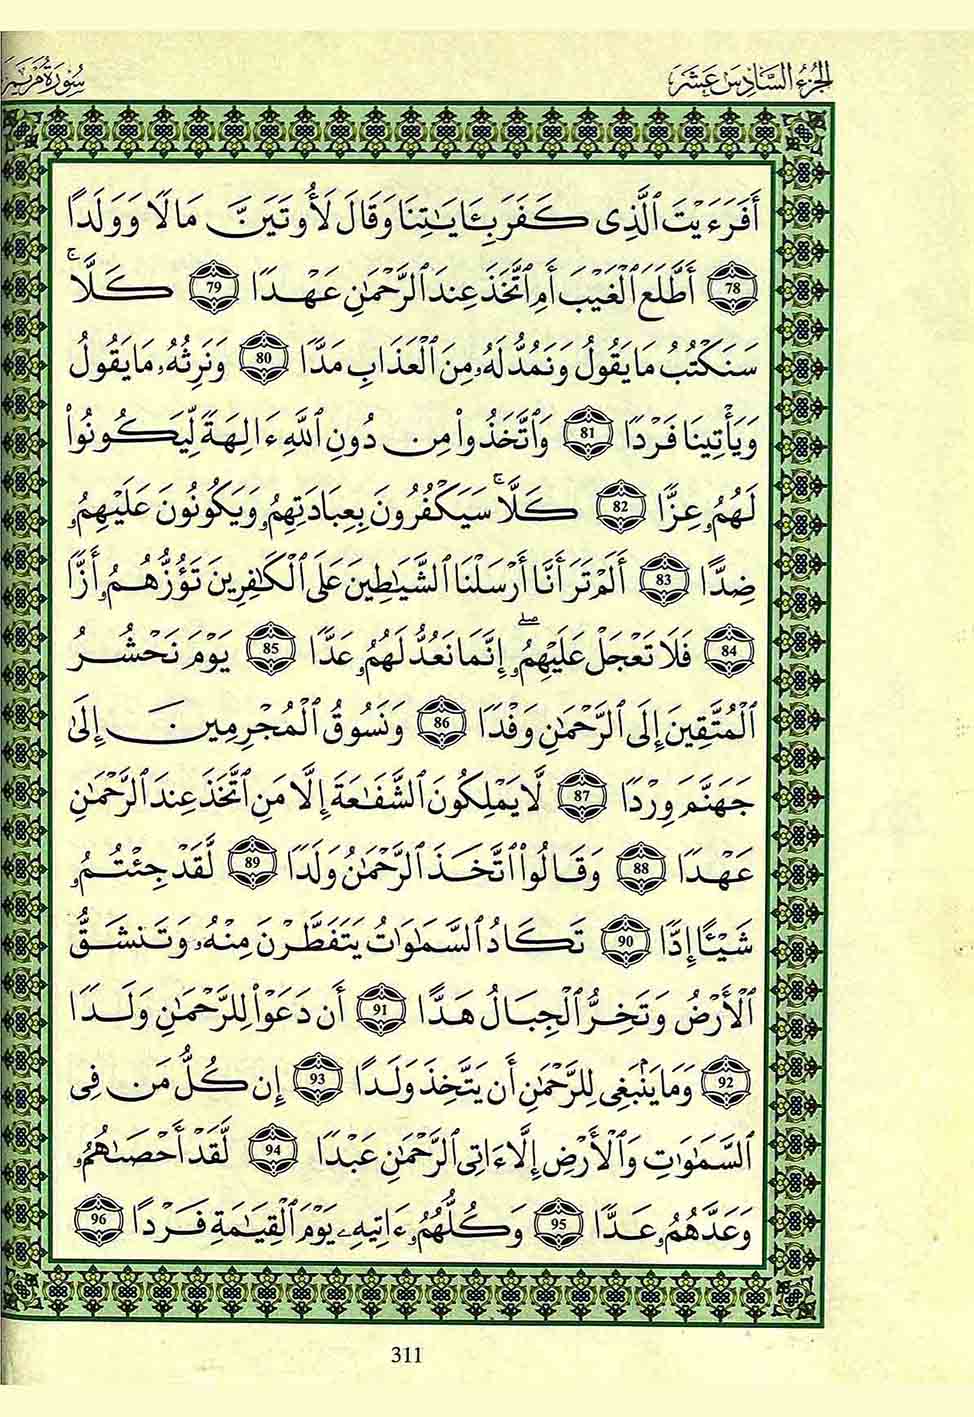 الجُزْءُ السَّادِسَ عَشَرَ
سُورَةُ مَرْيَمَ
أَفَرَءَيْتَ ٱلَّذِى كَفَرَ بِـَٔايَٰتِنَا وَقَالَ لَأُوتَيَنَّ مَالًا وَوَلَدًا
78 أَطَّلَعَ ٱلْغَيْبَ أَمِ ٱتَّخَذَ عِندَ ٱلرَّحْمَٰنِ عَهْدًا 79 كَلَّاۚ
سَنَكْتُبُ مَا يَقُولُ وَنَمُدُّ لَهُۥ مِنَ ٱلْعَذَابِ مَدًّا 80 وَنَرِثُهُۥ مَا يَقُولُ
وَيَأْتِينَا فَرْدًا 81 وَٱتَّخَذُوا۟ مِن دُونِ ٱللَّهِ ءَالِهَةً لِّيَكُونُوا۟
لَهُمُۥ عِزًّا 82 كَلَّاۚ سَيَكْفُرُونَ بِعِبَادَتِهِمُۥ وَيَكُونُونَ عَلَيْهِمُۥ
ضِدًّا 83 أَلَمْ تَرَ أَنَّا أَرْسَلْنَا ٱلشَّيَٰطِينَ عَلَى ٱلْكَٰفِرِينَ تَؤُزُّهُمُۥ أَزًّا
84 فَلَا تَعْجَلْ عَلَيْهِمُۥۖ إِنَّمَا نَعُدُّ لَهُمُۥ عَدًّا 85 يَوْمَ نَحْشُرُ
ٱلْمُتَّقِينَ إِلَى ٱلرَّحْمَٰنِ وَفْدًا 86 وَنَسُوقُ ٱلْمُجْرِمِينَ إِلَىٰ
جَهَنَّمَ وِرْدًا 87 لَّا يَمْلِكُونَ ٱلشَّفَٰعَةَ إِلَّا مَنِ ٱتَّخَذَ عِندَ ٱلرَّحْمَٰنِ
عَهْدًا 88 وَقَالُوا۟ ٱتَّخَذَ ٱلرَّحْمَٰنُ وَلَدًا 89 لَّقَدْ جِئْتُمُۥ
شَيْـًٔا إِدًّا 90 تَكَادُ ٱلسَّمَٰوَٰتُ يَتَفَطَّرْنَ مِنْهُۥ وَتَنشَقُّ
ٱلْأَرْضُ وَتَخِرُّ ٱلْجِبَالُ هَدًّا 91 أَن دَعَوْا۟ لِلرَّحْمَٰنِ وَلَدًا
92 وَمَا يَنۢبَغِى لِلرَّحْمَٰنِ أَن يَتَّخِذَ وَلَدًا 93 إِن كُلُّ مَن فِى
ٱلسَّمَٰوَٰتِ وَٱلْأَرْضِ إِلَّا ءَاتِى ٱلرَّحْمَٰنِ عَبْدًا 94 لَّقَدْ أَحْصَىٰهُمُۥ
وَعَدَّهُمُۥ عَدًّا 95 وَكُلُّهُمُۥ ءَاتِيهِۦ يَوْمَ ٱلْقِيَٰمَةِ فَرْدًا 96
311